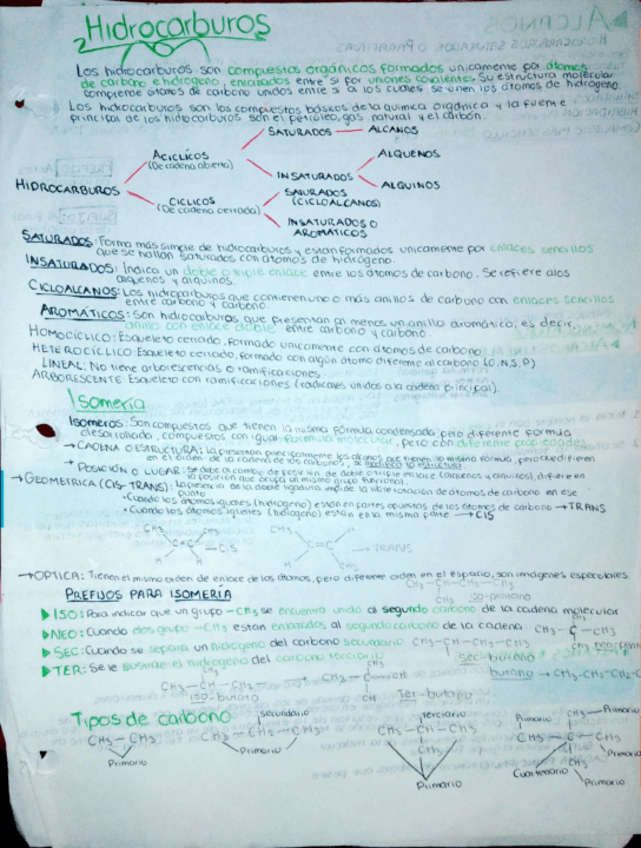 Hidrocarburos
Los hidrocarburos son compuestos orgánicos formados unicamente por átomos
de carbono e hidrógeno, enlazados entre sí por uniones covalentes. Su estructura molecular
comprende átomos de carbono unidos entre sí a los cuales se unen los átomos de hidrógeno.
Los hidrocarburos son los compuestos básicos de la química orgánica y la fuente
principal de los hidrocarburos son el petróleo, gas natural y el carbón.
SATURADOS ALCANOS
ACICLÍCOS
(De cadena abierta)
ALQUENOS
INSATURADOS
ALQUINOS
HIDROCARBUROS
SATURADOS
(CICLOALCANOS)
CICLICOS
(De cadena cerrada)
INSATURADOS O
AROMÁTICOS
SATURADOS: Forma más simple de hidrocarburos y estan formados unicamente por enlaces sencillos
que se hallan saturados con átomos de hidrógeno.
INSATURADOS: Indica un doble o triple enlace entre los átomos de carbono. Se refiere a los
alquenos y alquinos.
CICLOALCANOS: Los hidrocarburos que contienen uno o más anillos de carbono con enlaces sencillos
entre carbono y carbono.
AROMÁTICOS: Son hidrocarburos que presentan al menos un anillo aromático, es decir,
anillo con enlace doble entre carbono y carbono.
HOMOCÍCLICO: Esqueleto cerrado, formado unicamente con átomos de carbono
HETEROCÍCLICO: Esqueleto cerrado, formado con algún átomo diferente al carbono (O, N, S, P)
LINEAL: No tiene arborescencias o ramificaciones
ARBORESCENTE: Esqueleto con ramificaciones (radicales unidos a la cadena principal).
Isomería
Isómeros: Son compuestos que tienen la misma fórmula condensada, pero diferente fórmula
desarrollada, compuestos con igual fórmula molecular, pero con diferente propiedades
→ CADENA O ESTRUCTURA: La presentan principalmente los alcanos que tienen la misma fórmula, pero difieren
en el orden de la cadena de los carbonos, se modifica la estructura.
→ POSICIÓN O LUGAR: Se debe al cambio de posición de doble o triple enlace (alquenos y alquinos), difiere en
la posición que ocupa un mismo grupo funcional.
→ GEOMETRICA (CIS-TRANS): La presencia de la doble ligadura impide la libre rotación de átomos de carbono en ese
punto
• Cuando los átomos iguales (hidrógeno) están en partes opuestas de los átomos de carbono → TRANS
• Cuando los átomos iguales (hidrógeno) están en la misma parte → CIS
CH₃ CH₃
C=C → CIS
H H
CH₃ H
C=C → TRANS
H CH₃
→ OPTICA: Tienen el mismo orden de enlace de los átomos, pero diferente orden en el espacio, son imágenes especulares
PREFIJOS PARA ISOMERÍA
CH₃-CH-CH₂-CH₃
CH₃
iso-pentano
ISO: Para indicar que un grupo -CH₃ se encuentra unido al segundo carbono de la cadena molecular
NEO: Cuando dos grupo -CH₃ estan enlazados al segundo carbono de la cadena
CH₃
CH₃-C-CH₃
CH₃
SEC: Cuando se separa un hidrógeno del carbono secundario CH₃-CH-CH₂-CH₃
sec-butano
butano → CH₃-CH₂-CH₂-C
TER: Se le
del carbono terciario
CH₃
CH₃-CH-CH₂
iso-butano
CH₃
Ter-butano
Tipos de carbono
CH₃-CH₃
Primario
secundario
CH₃-CH₂-CH₃
Primario
terciario
CH₃-CH-CH₃
CH₃
Primario
Primario
CH₃ Primario
CH₃-C-CH₃
CH₃
Primario
Cuaternario
Primario